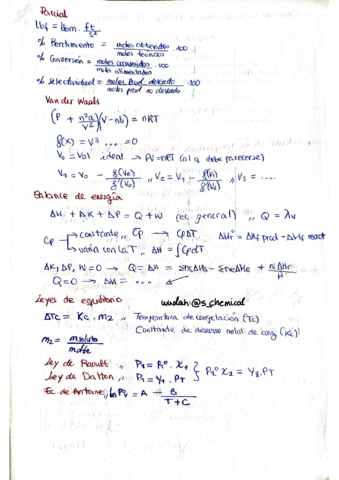 Parcial
Lbf = lbm . ft/s²
% Rendimiento = moles obtenidos / moles teóricos . 100
% Conversión = moles consumidos / moles alimentados . 100
% selectividad = moles prod deseado / moles prod no deseado . 100
Van der Waals
(P + n²a/V²)(V - nb) = nRT
f(x) = V³ ... = 0
V₀ = Vol ideal → PV = nRT (al q debe parecerse)
V₁ = V₀ - f(V₀)/f'(V₀) ,, V₂ = V₁ - f(V₁)/f'(V₁) ,, V₃ = ....
Balance de energía
ΔH + ΔK + ΔP = Q + W (ec general) ,, Q = λv
Cp → constante ,, Cp → CpΔT ΔHr° = ΔHf prod - ΔHf react
→ varía con la T ,, ΔH = ∫CpdT
ΔK, ΔP, W = 0 → Q = ΔH = ΣnsΔHs - ΣneΔHe + n ΔHr
Q = 0 → ΔH = ....
Leyes de equilibrio wuolah: @s_chemical
ΔTc = Kc . m₂ ,, Temperatura de congelación (Tc)
Constante de descenso molal de cong (Kc)
m₂ = m soluto / m dte
Ley de Raoult ,, P₁ = P₁° . X₁
Ley de Dalton ,, P₁ = Y₁ . PT } P₁° X₁ = Y₁ . PT
Ec. de Antoine ,, ln Pv = A - B / T + C